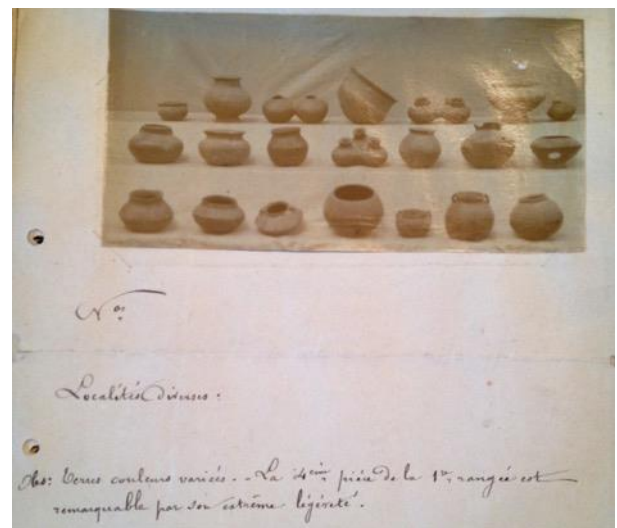 Nos
Localités Diverses :
Obs: Terres couleurs variées. - La 4eme pièce de la 1re rangée est
remarquable par son extrême légèreté.